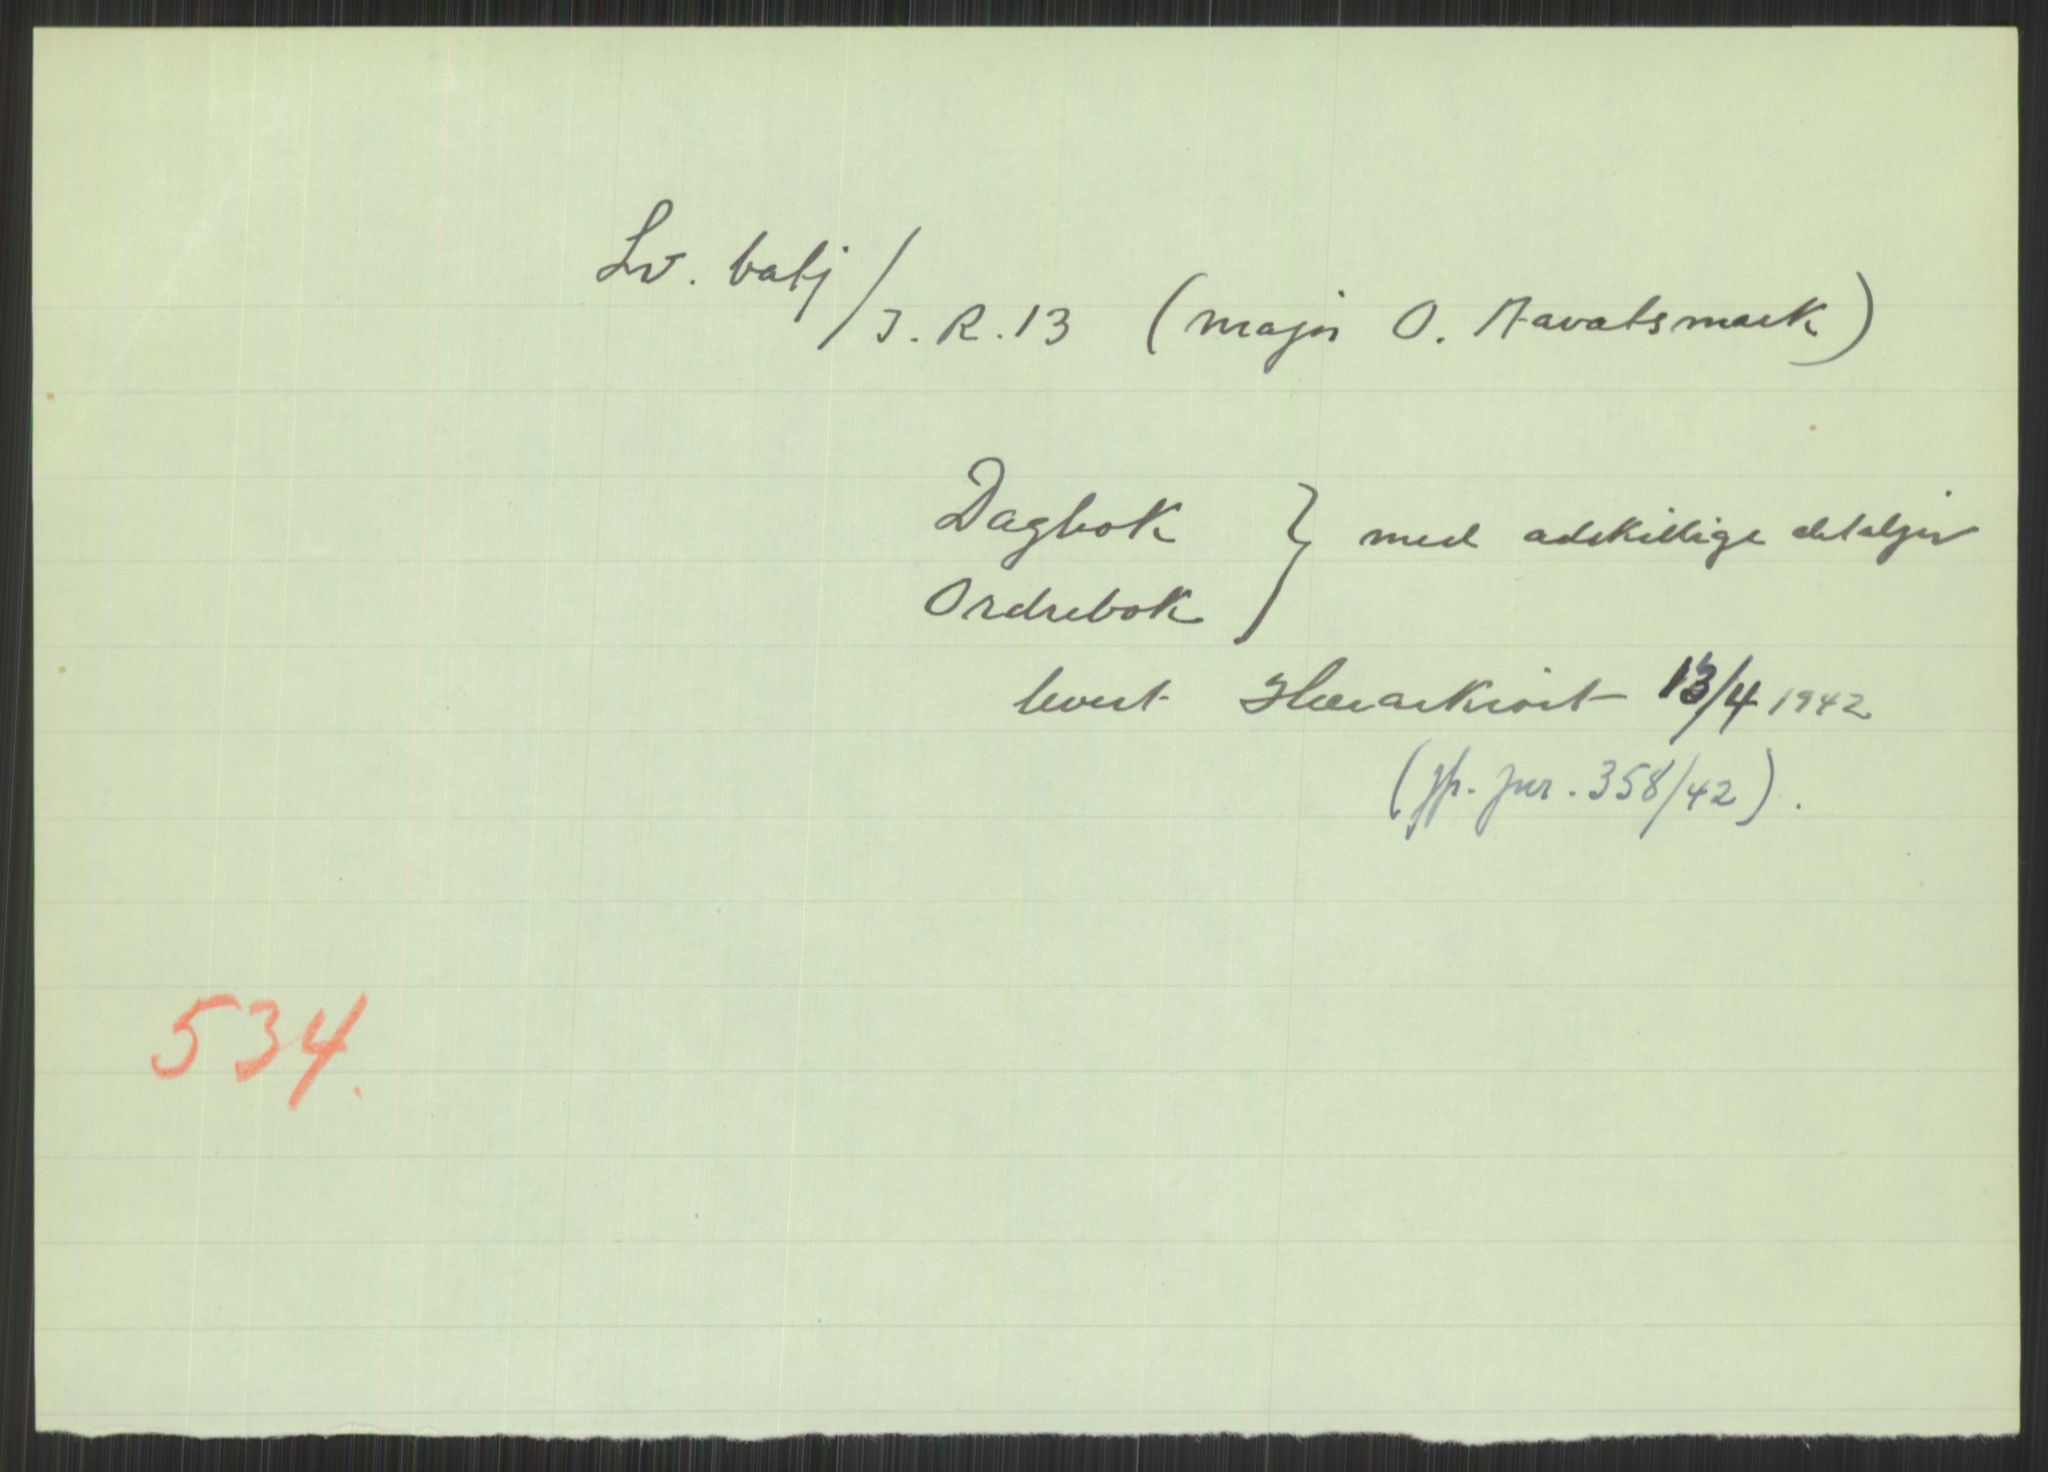 Lv. batj/I.R.13 (major O. Aavatsmark)
Dagbok } med adskillige detaljer
Ordrebok
levert Hærarkivet 13/4 1942
(jfr. jnr. 358/42).
534.